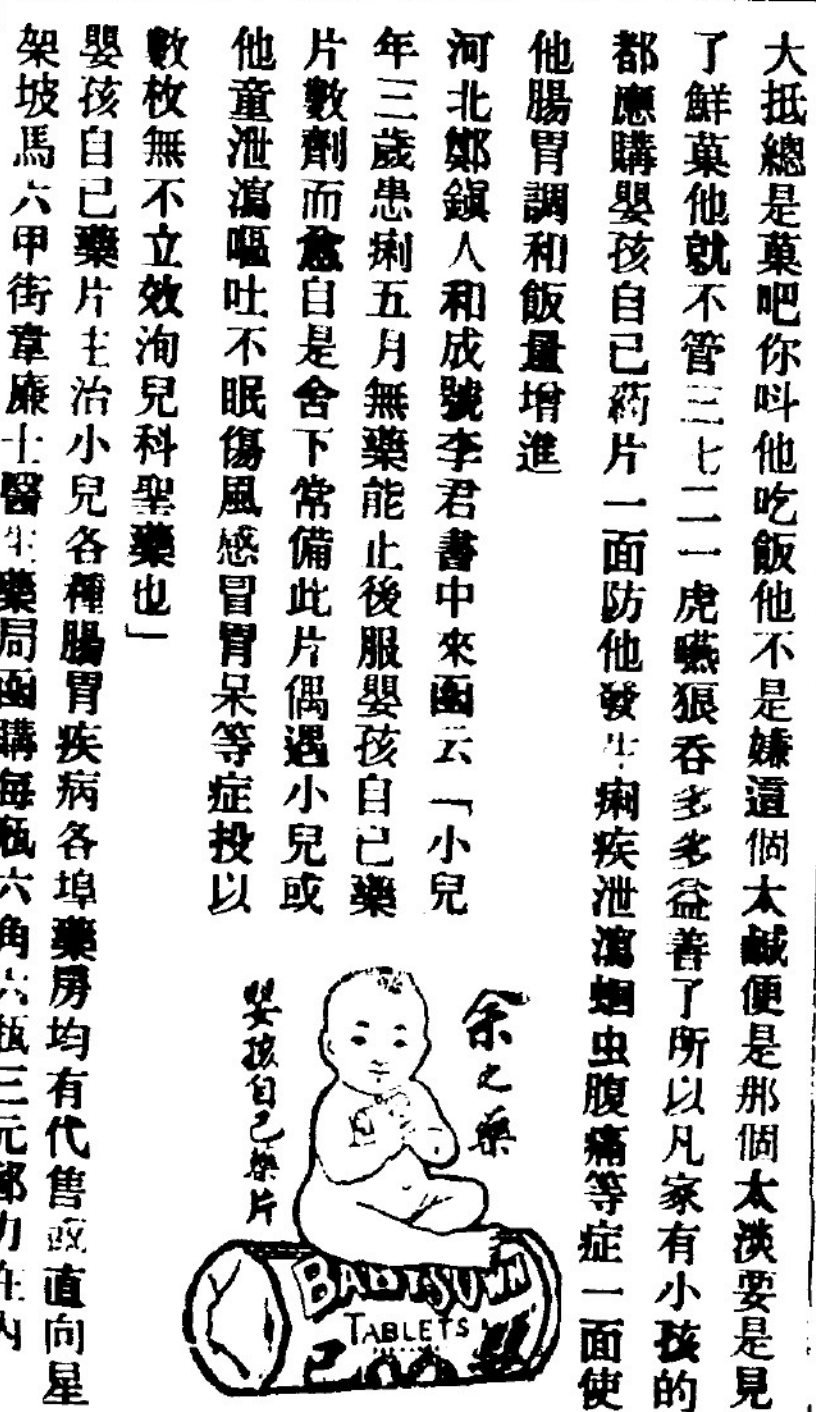 大抵總是菓吧你呌他吃飯他不是嫌這個太鹹便是那個太淡要是見
了鮮菓他就不管三七二一虎嚥狼吞多多益善了所以凡家有小孩的
都應購嬰孩自己葯片一面防他發生痢疾泄瀉蛔虫腹痛等症一面使
他腸胃調和飯量增進
河北鄭鎭人和成號李君書中來函云「小兒
年三歲患痢五月無藥能止後服嬰孩自己藥
片數劑而愈自是舍下常備此片偶遇小兒或
他童泄瀉嘔吐不眠傷風感冒胃呆等症投以
數枚無不立效洵兒科聖藥也」
嬰孩自己藥片主治小兒各種腸胃疾病各埠藥房均有代售或直向星
架坡馬六甲街韋廉士醫生藥局函購每瓶六角六瓶三元郵力在內
余之藥
嬰孩自己藥片
BABY'S OWN
TABLETS